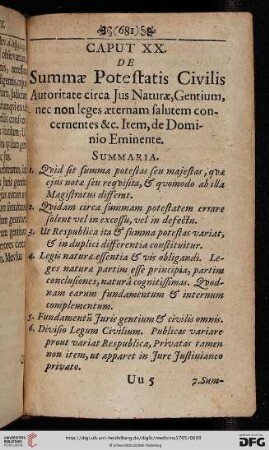 (681)
CAPUT XX.
DE
Summæ Potestatis Civilis
Autoritate circa Jus Naturæ, Gentium,
nec non leges æternam salutem con-
cernentes &c. Item, de Domi-
nio Eminente.
SUMMARIA.
1. Quid sit summa potestas seu majestas, quæ
ejus notæ seu requisita, & quomodo ab illa
Magistratus differat.
2. Quidam circa summam potestatem errare
solent vel in excessu, vel in defectu.
3. Ut Respublica ita & summa potestas variat,
& in duplici differentia constituitur.
4. Legis naturæ essentia & vis obligandi. Le-
ges naturæ partim esse principia, partim
conclusiones, naturâ cognitissimas. Quod-
nam earum fundamentum & internum
complementum.
5. Fundamentũ Juris gentium & civilis omnis.
6. Divisio Legum Civilium. Publicas variare
prout variat Respublica, Privatas tamen
non item, ut apparet in Jure Justinianeo
privato.
Uu 5
7. Sum-
http://digi.ub.uni-heidelberg.de/diglit/medicina1705/0690
© Universitätsbibliothek Heidelberg
UNIVERSITÄTS-
BIBLIOTHEK
HEIDELBERG
Gefördert durch die
DFG